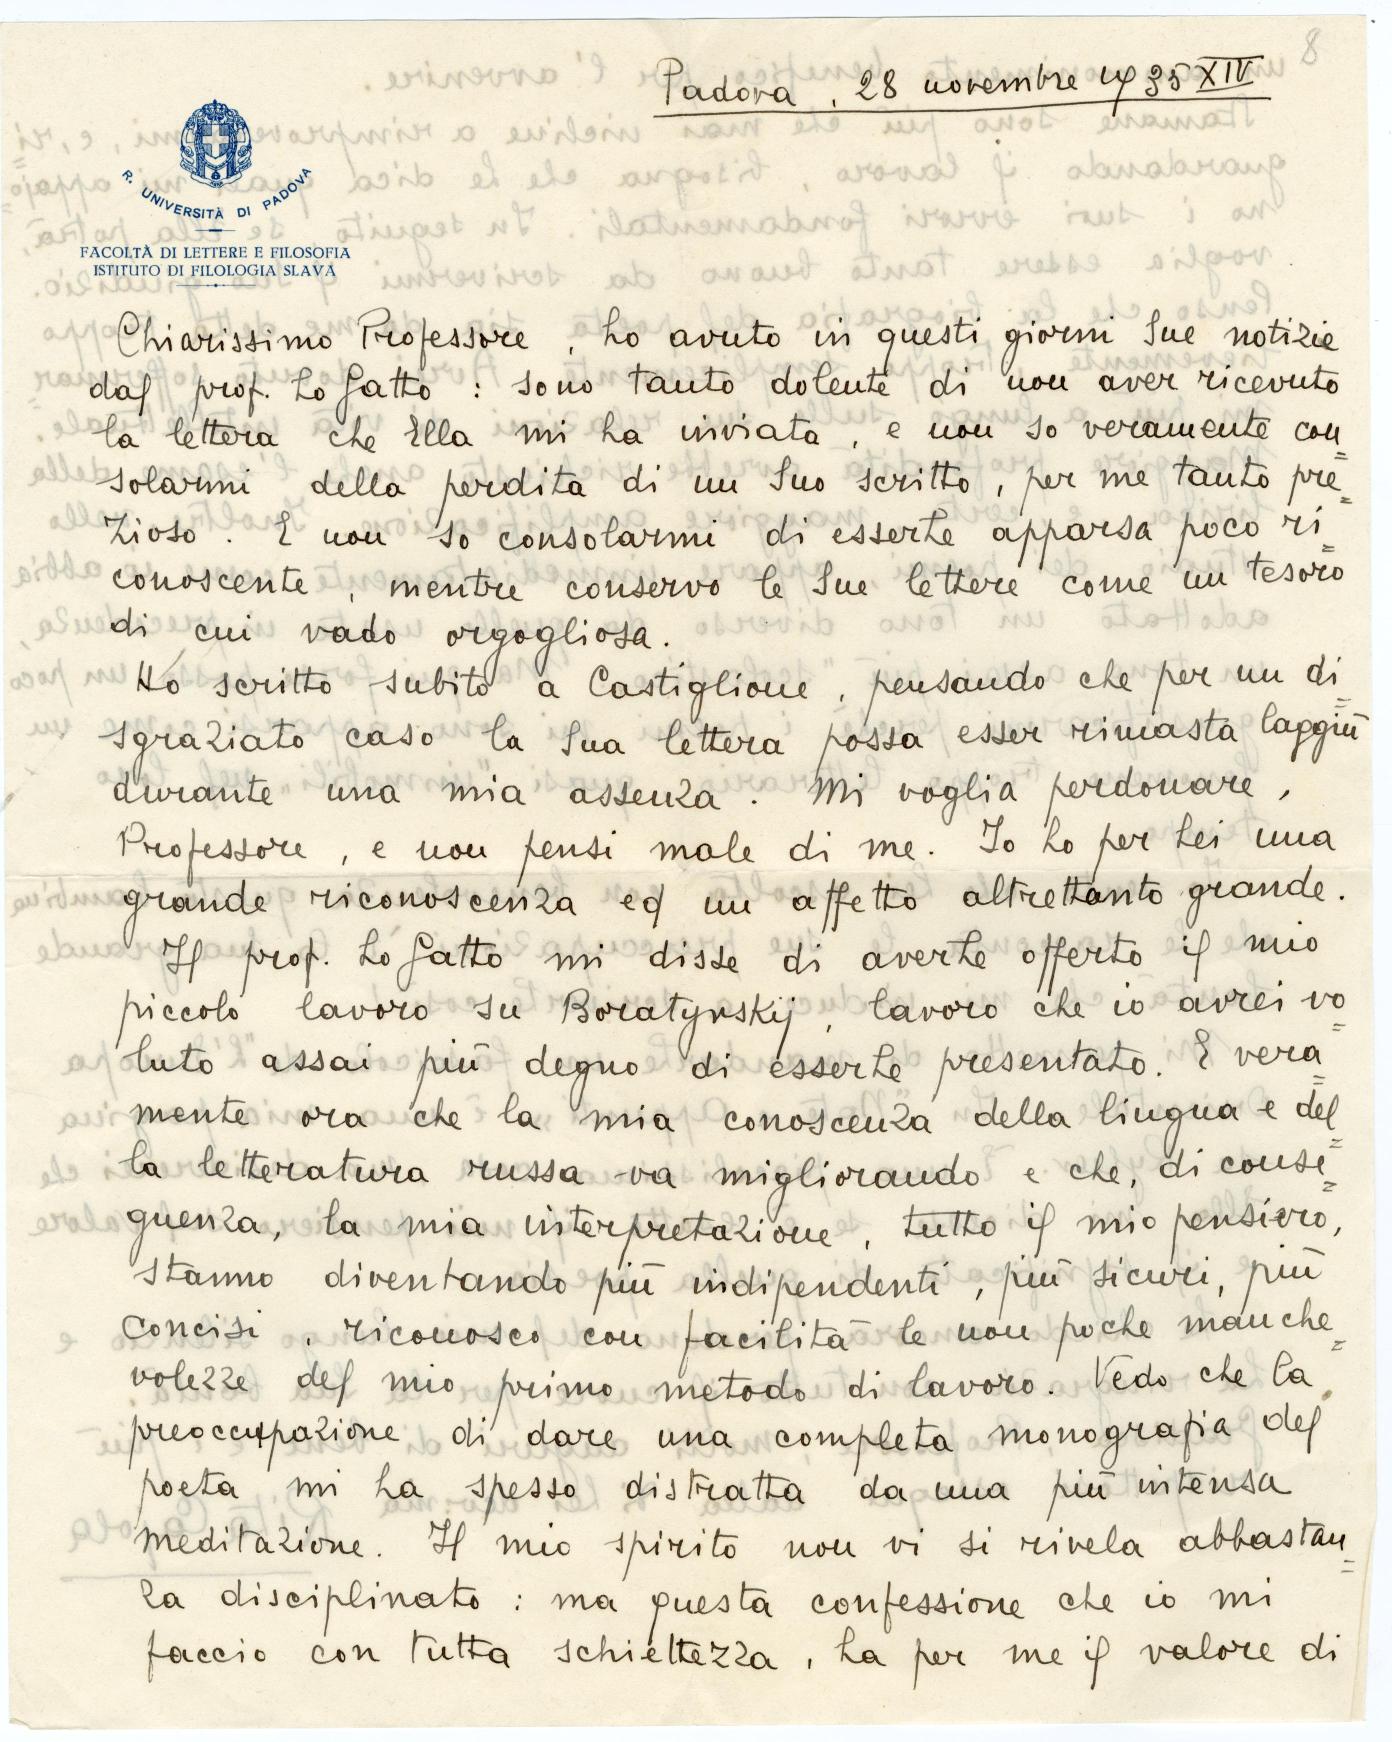 8
Padova, 28 novembre 1935 XIV
R. UNIVERSITÀ DI PADOVA
FACOLTÀ DI LETTERE E FILOSOFIA
ISTITUTO DI FILOLOGIA SLAVA
Chiarissimo Professore, ho avuto in questi giorni Sue notizie
dal prof. Lo Gatto: sono tanto dolente di non aver ricevuto
la lettera che Ella mi ha inviata, e non so veramente con=
solarmi della perdita di un Suo scritto, per me tanto pre=
zioso. E non so consolarmi di esserLe apparsa poco ri=
conoscente, mentre conservo le Sue lettere come un tesoro
di cui vado orgogliosa.
Ho scritto subito a Castiglione, pensando che per un di=
sgraziato caso la Sua lettera possa esser rimasta laggiù
durante una mia assenza. Mi voglia perdonare,
Professore, e non pensi male di me. Io ho per Lei una
grande riconoscenza ed un affetto altrettanto grande.
Il prof. Lo Gatto mi disse di averLe offerto il mio
piccolo lavoro su Boratynskij, lavoro che io avrei vo=
luto assai più degno di esserLe presentato. E vera=
mente ora che la mia conoscenza della lingua e del=
la letteratura russa va migliorando e che, di conse=
guenza, la mia interpretazione, tutto il mio pensiero,
stanno diventando più indipendenti, più sicuri, più
concisi, riconosco con facilità le non poche manche=
volezze del mio primo metodo di lavoro. Vedo che la
preoccupazione di dare una completa monografia del
poeta mi ha spesso distratta da una più intensa
meditazione. Il mio spirito non vi si rivela abbastan=
za disciplinato: ma questa confessione che io mi
faccio con tutta schiettezza, ha per me il valore di